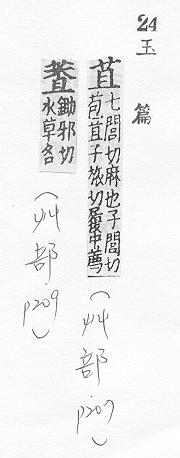 24
玉篇
苴 七閭切麻也子閭切苞苴子旅切履中薦
(艸部 p207)
葟 鋤邪切水草名
(艸部 p209)